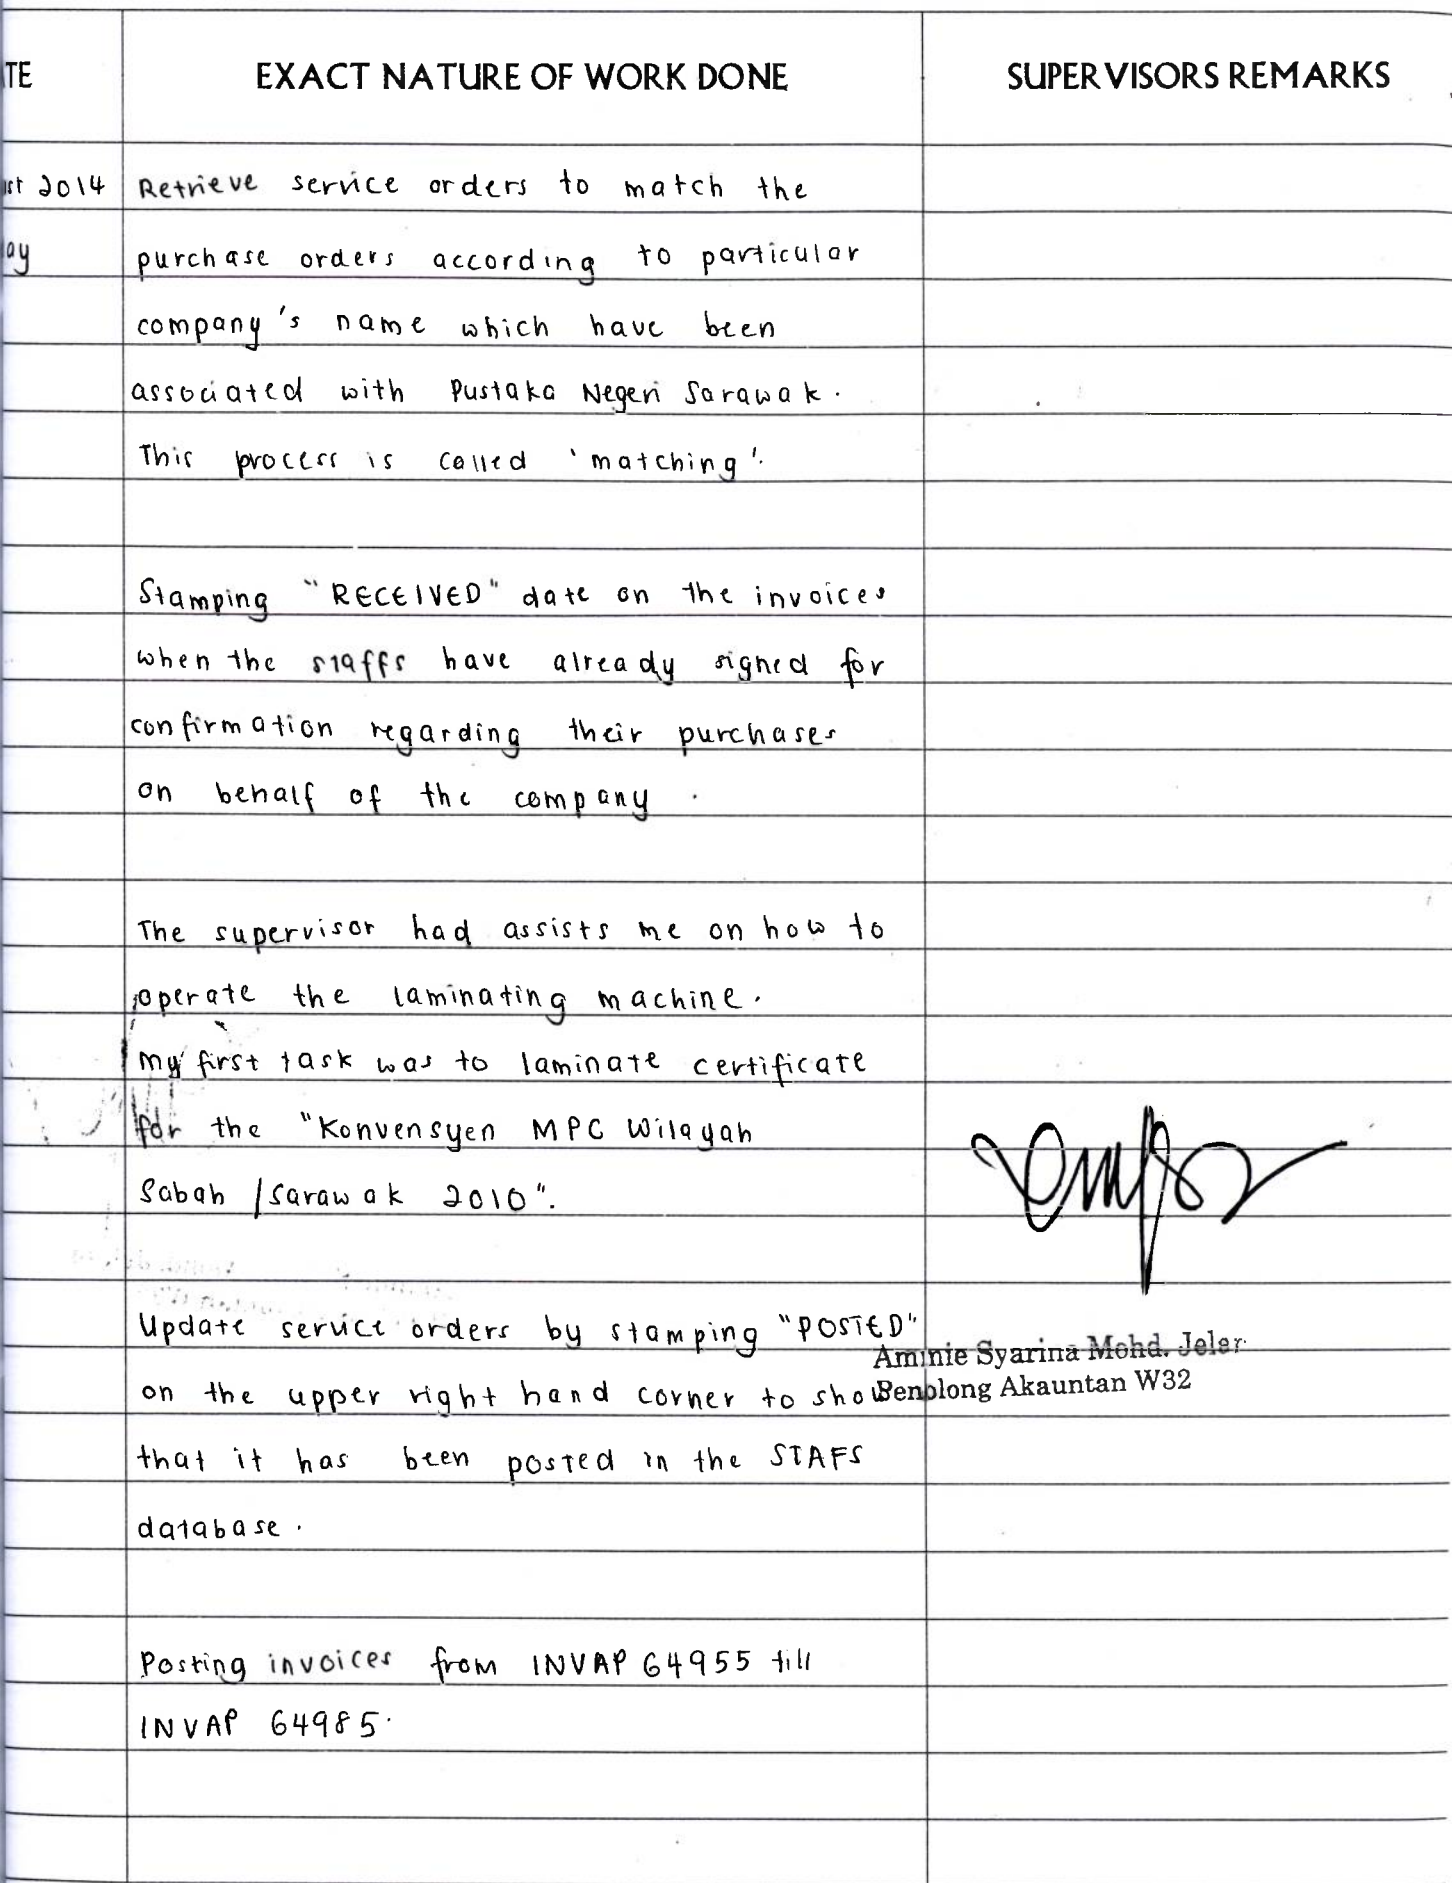 TE EXACT NATURE OF WORK DONE SUPERVISORS REMARKS
2014 Retrieve service orders to match the
ay purchase orders according to particular
company's name which have been
associated with Pustaka Negeri Sarawak.
This process is called 'matching'.
Stamping "RECEIVED" date on the invoices
when the staffs have already signed for
confirmation regarding their purchases
on behalf of the company.
The supervisor had assists me on how to
operate the laminating machine.
My first task was to laminate certificate
for the "Konvensyen MPC Wilayah
Sabah / Sarawak 2010".
Update service orders by stamping "POSTED"
Aminie Syarina Mohd. Jelar
on the upper right hand corner to show
Penolong Akauntan W32
that it has been posted in the STAFS
database.
Posting invoices from INVAP 64955 till
INVAP 64985.